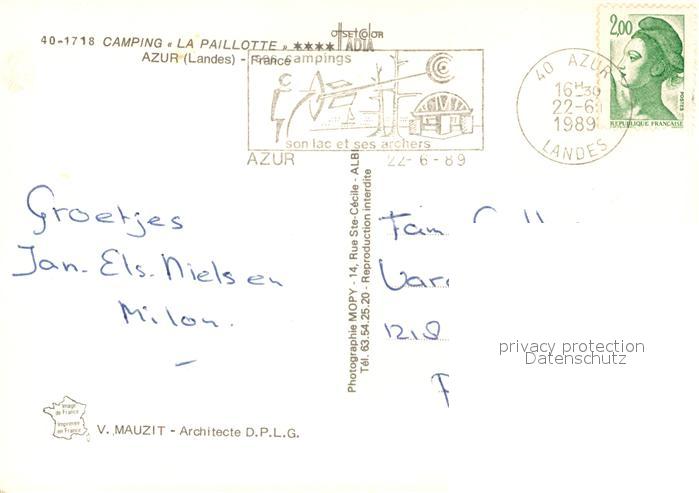 40-1718 CAMPING « LA PAILLOTTE » ★★★★
AZUR (Landes) - France
offset color
ADIA
campings
son lac et ses archers
AZUR 22-6-89
40 AZUR
16 H 30
22-6
1989
LANDES
2,00
POSTES
REPUBLIQUE FRANÇAISE
Groetjes
Jan. Els. Niels en
Milon.
Photographie MOPY - 14, Rue Ste-Cécile - ALBI
Tél. 63.54.25.20 - Reproduction interdite
Fam
privacy protection
Datenschutz
Image de France
Imprimée en France
V. MAUZIT - Architecte D.P.L.G.